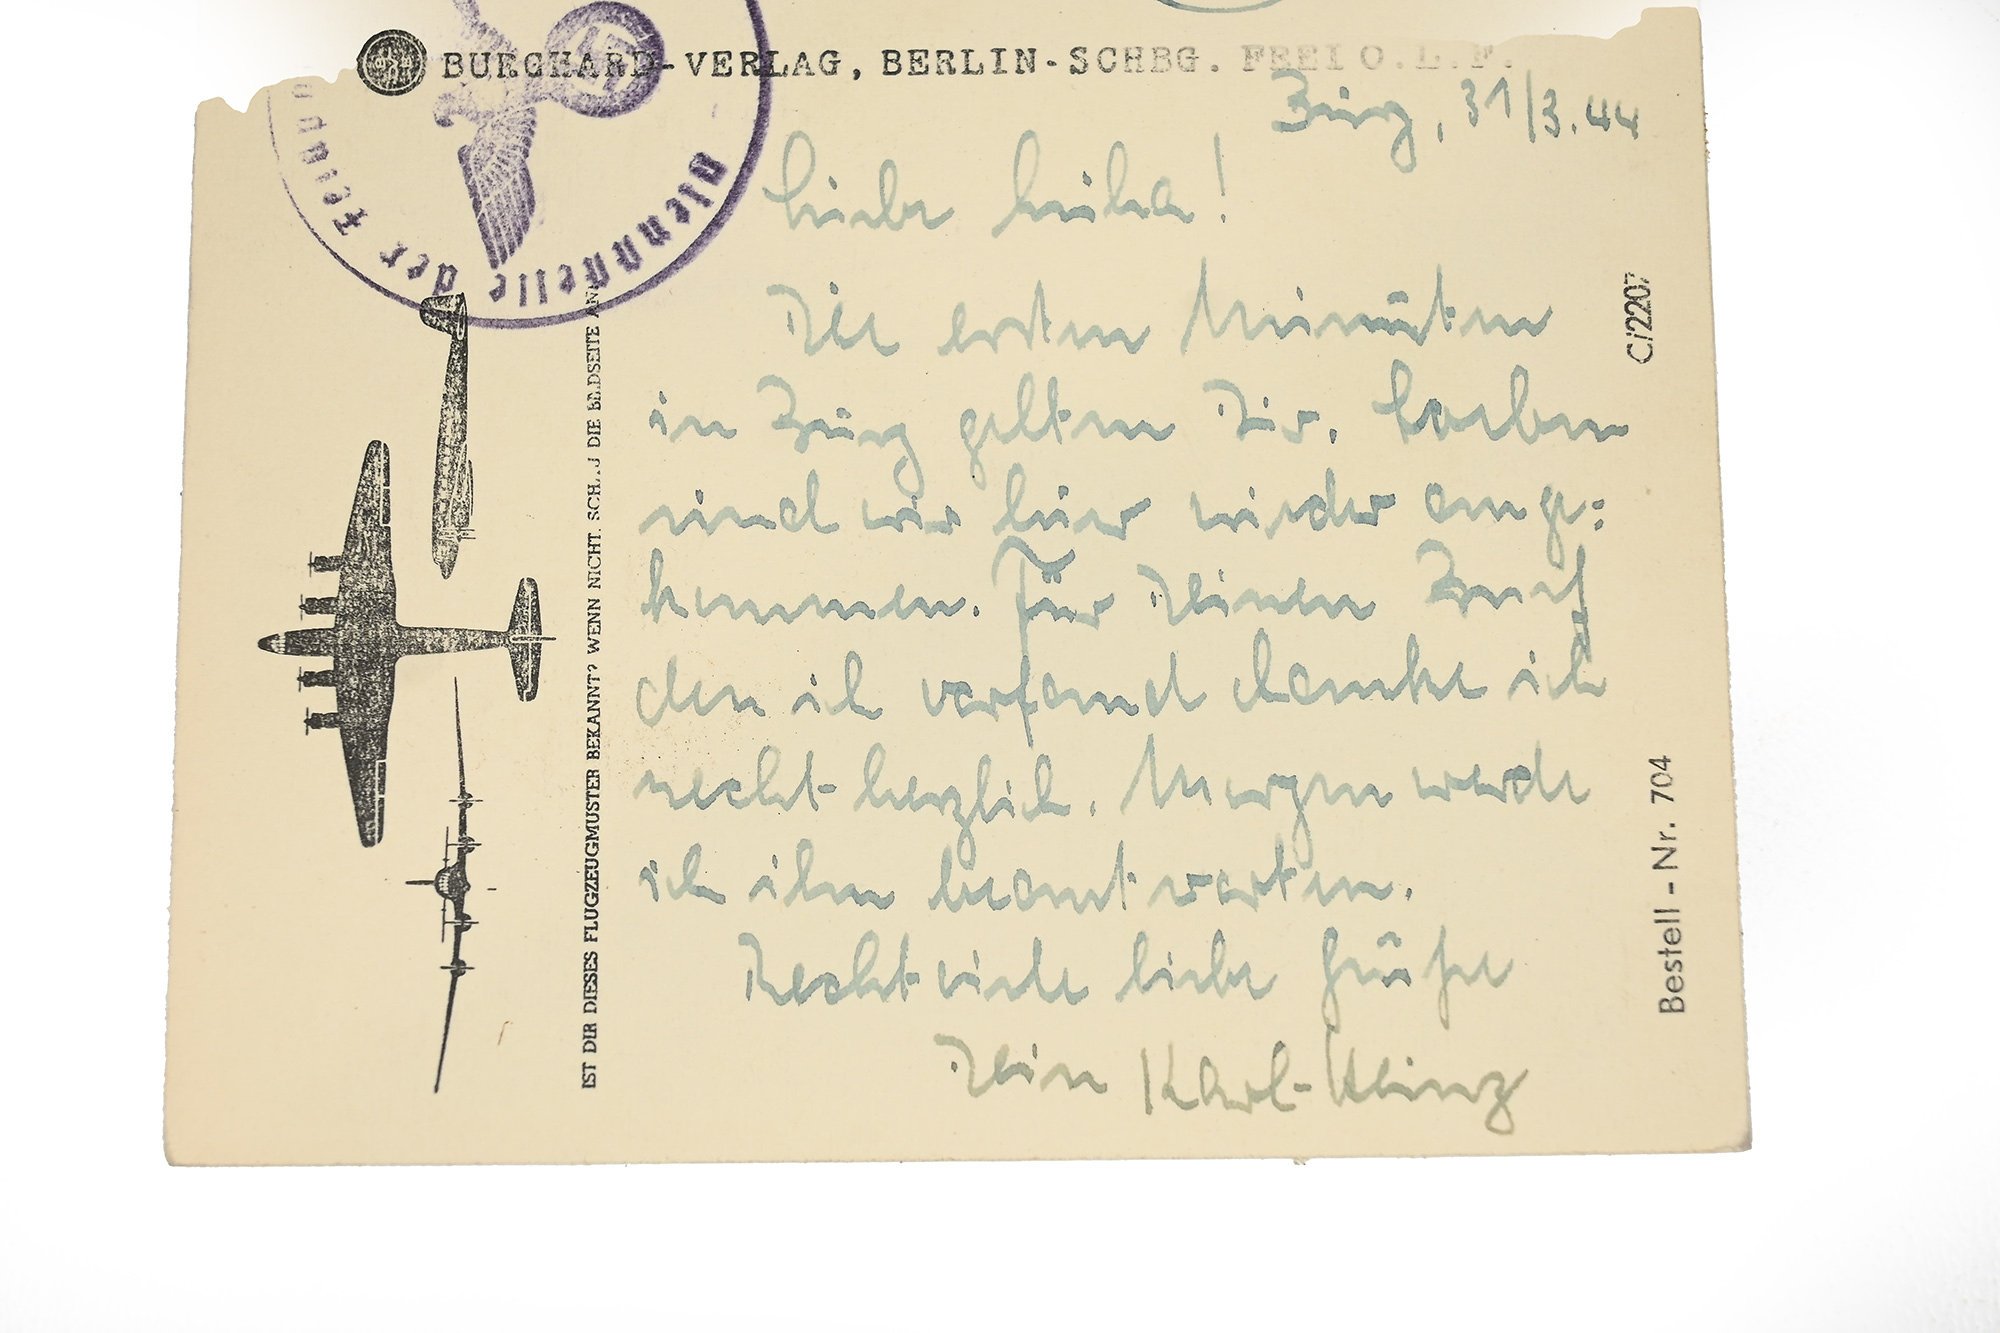 BURGHARD-VERLAG, BERLIN-SCHBG. FREI O.L.F.
Dienststelle der Feldp
Burg, 31/3.44
Liebe !
Die ersten Minuten
in Burg gelten Dir. Soeben
sind wir hier wieder ange:
kommen. Für Deinen Brief
den ich vorfand danke ich
recht herzlich. Morgen werde
ich ihn beantworten.
Recht viele liebe Grüße
Dein Karl-Heinz
IST DIR DIESES FLUGZEUGMUSTER BEKANNT? WENN NICHT. SCH..J DIE BILDSEITE AN
C/2207
Bestell-Nr. 704